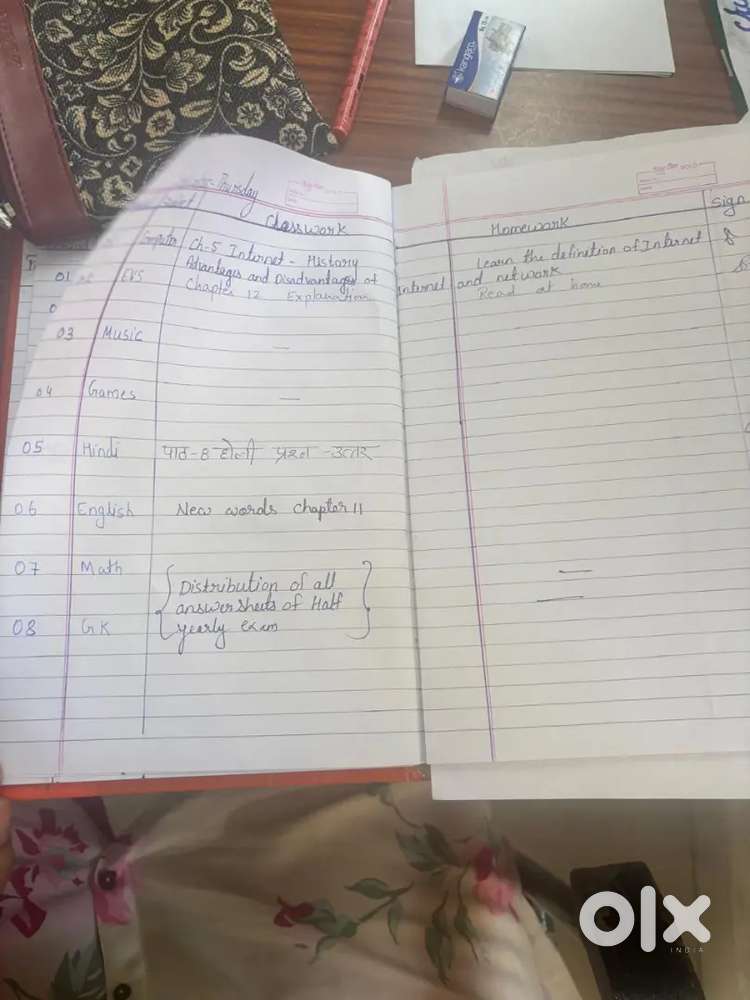 Kangaro
Thursday
Classwork
Homework
Sign
Computer
Ch-5 Internet - History
Advantages and Disadvantages of Internet
Learn the definition of Internet
and network
01
EVS
Chapter 12 Explanation
Read at home
03 Music —
04 Games —
05 Hindi पाठ-8 होली प्रश्न -उत्तर
06 English New words chapter 11
07 Math
{ Distribution of all
answer sheets of Half
yearly exam }
—
—
08 GK
olx
INDIA